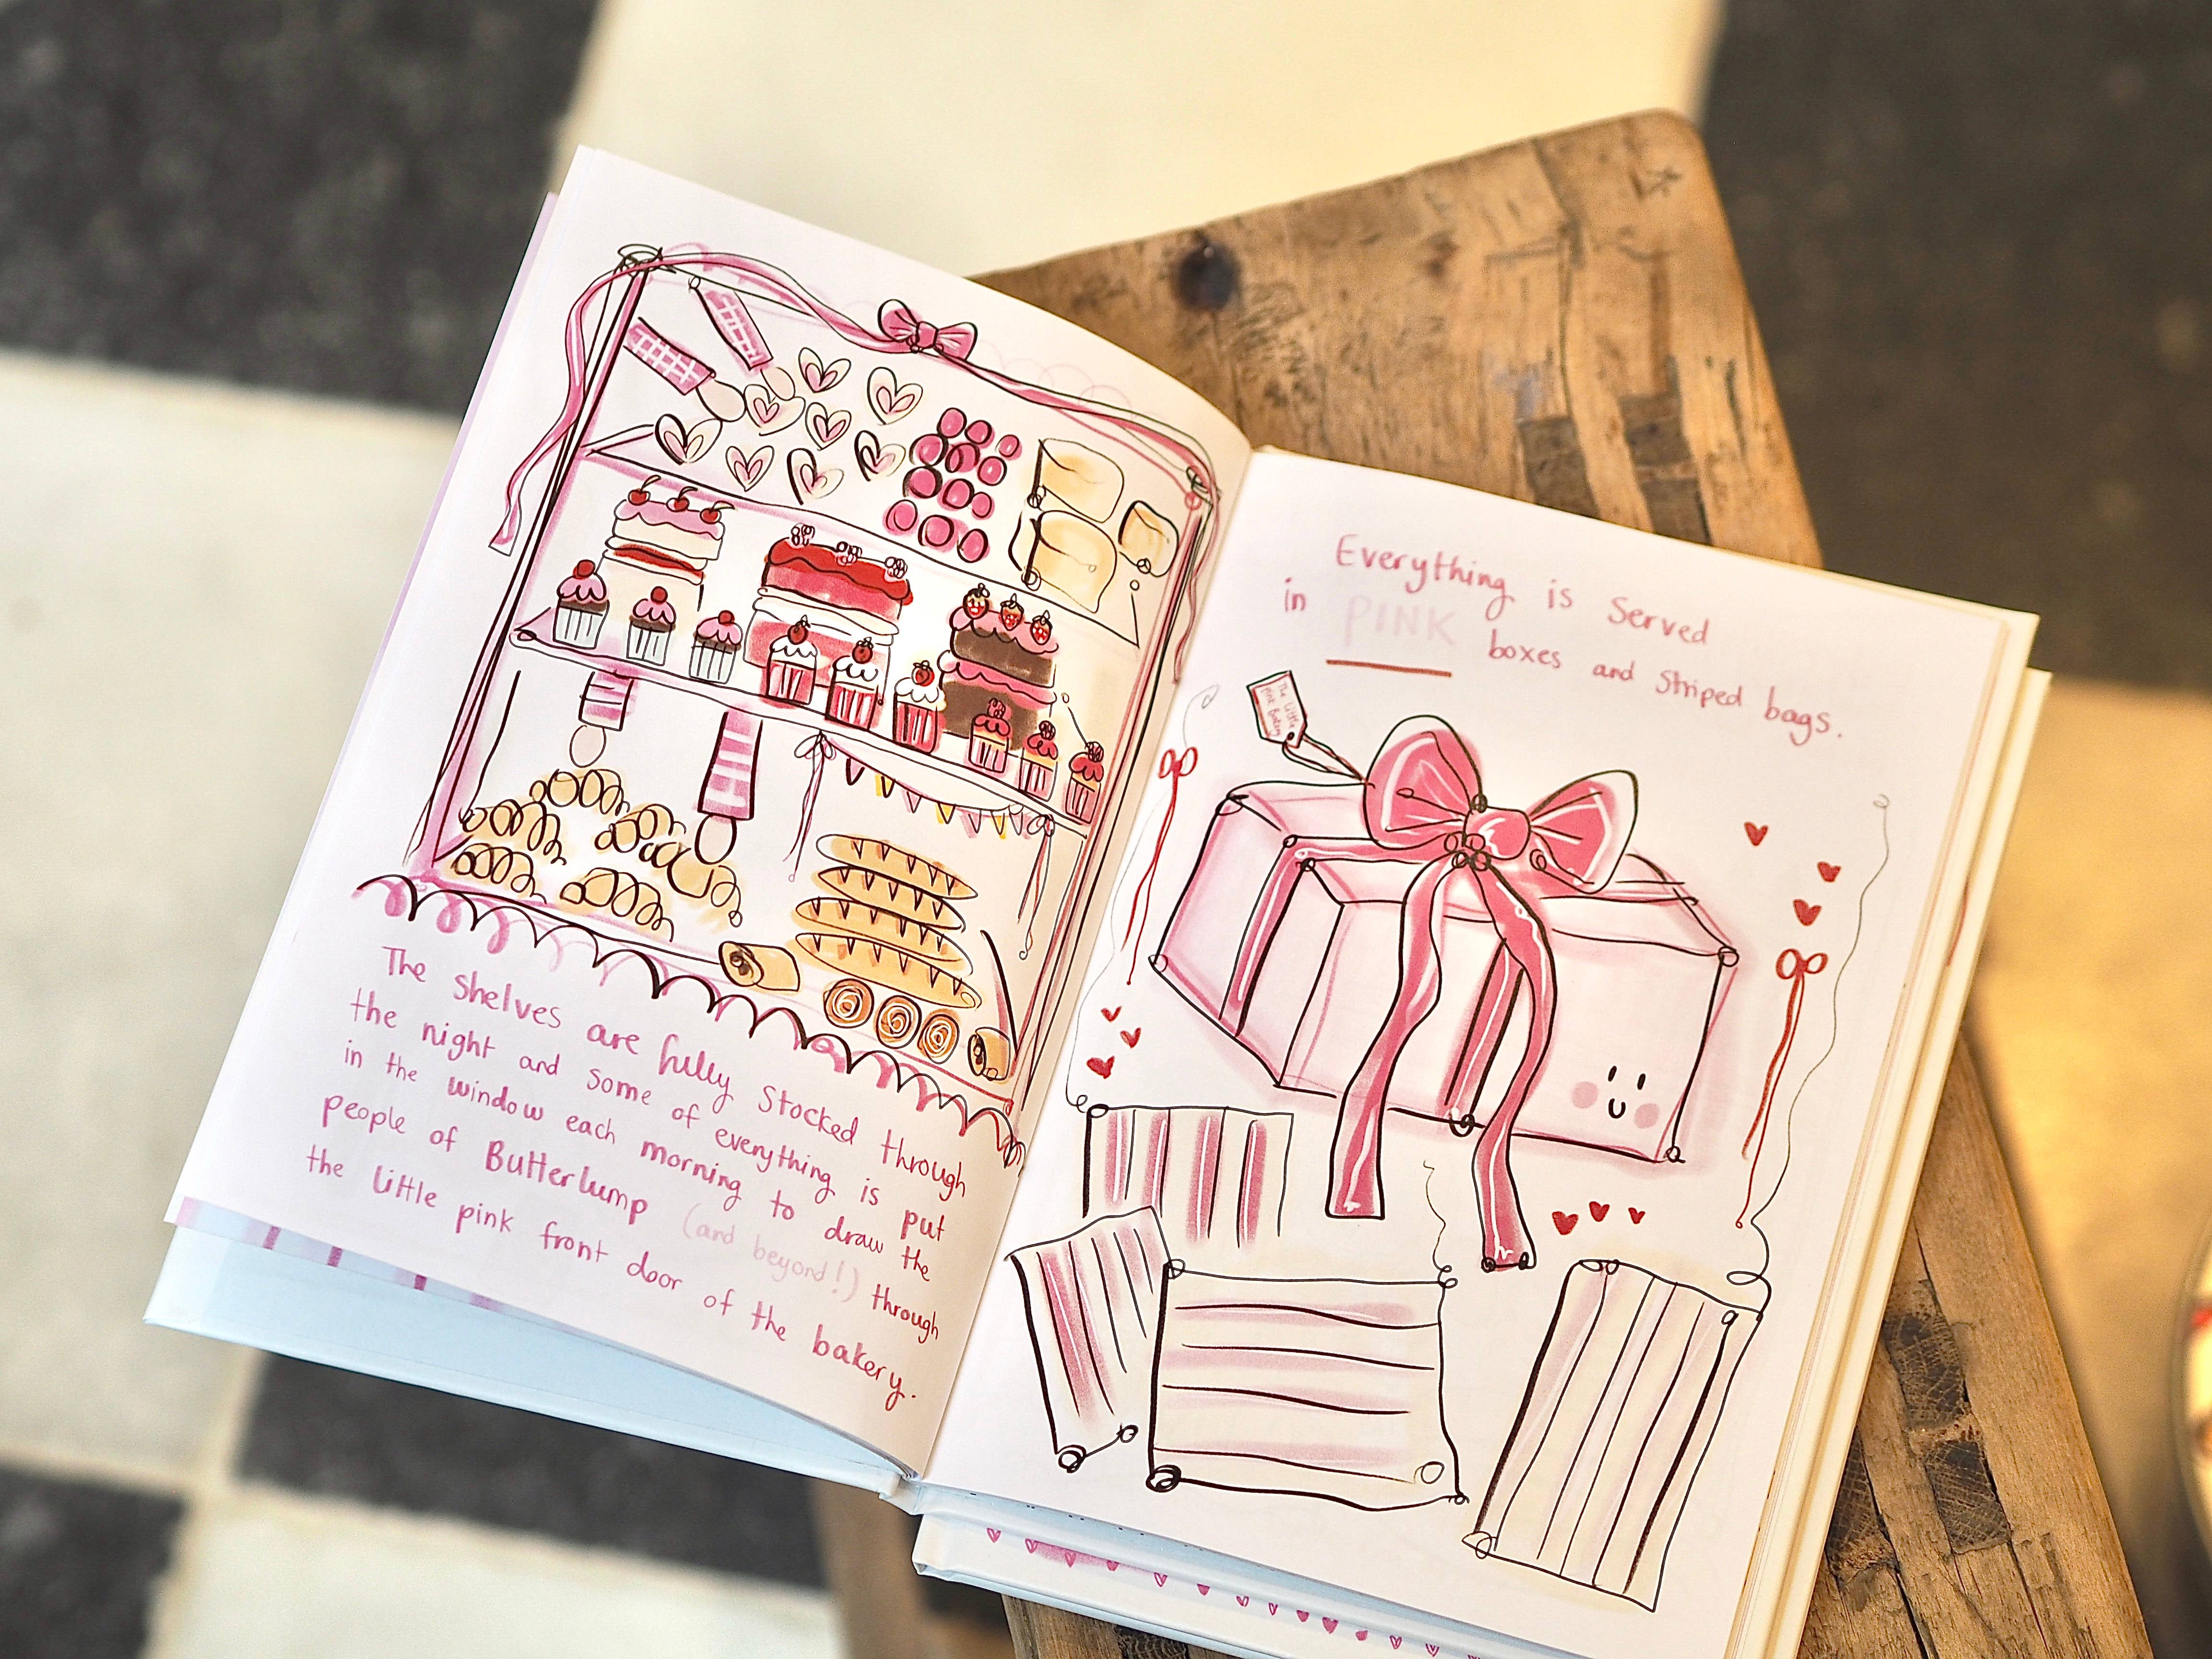 The shelves are fully stocked through
the night and some of everything is put
in the window each morning to draw the
people of Butterlump (and beyond!) through
the little pink front door of the bakery.
Everything is served
in PINK boxes and striped bags.
The little
Pink Bakery